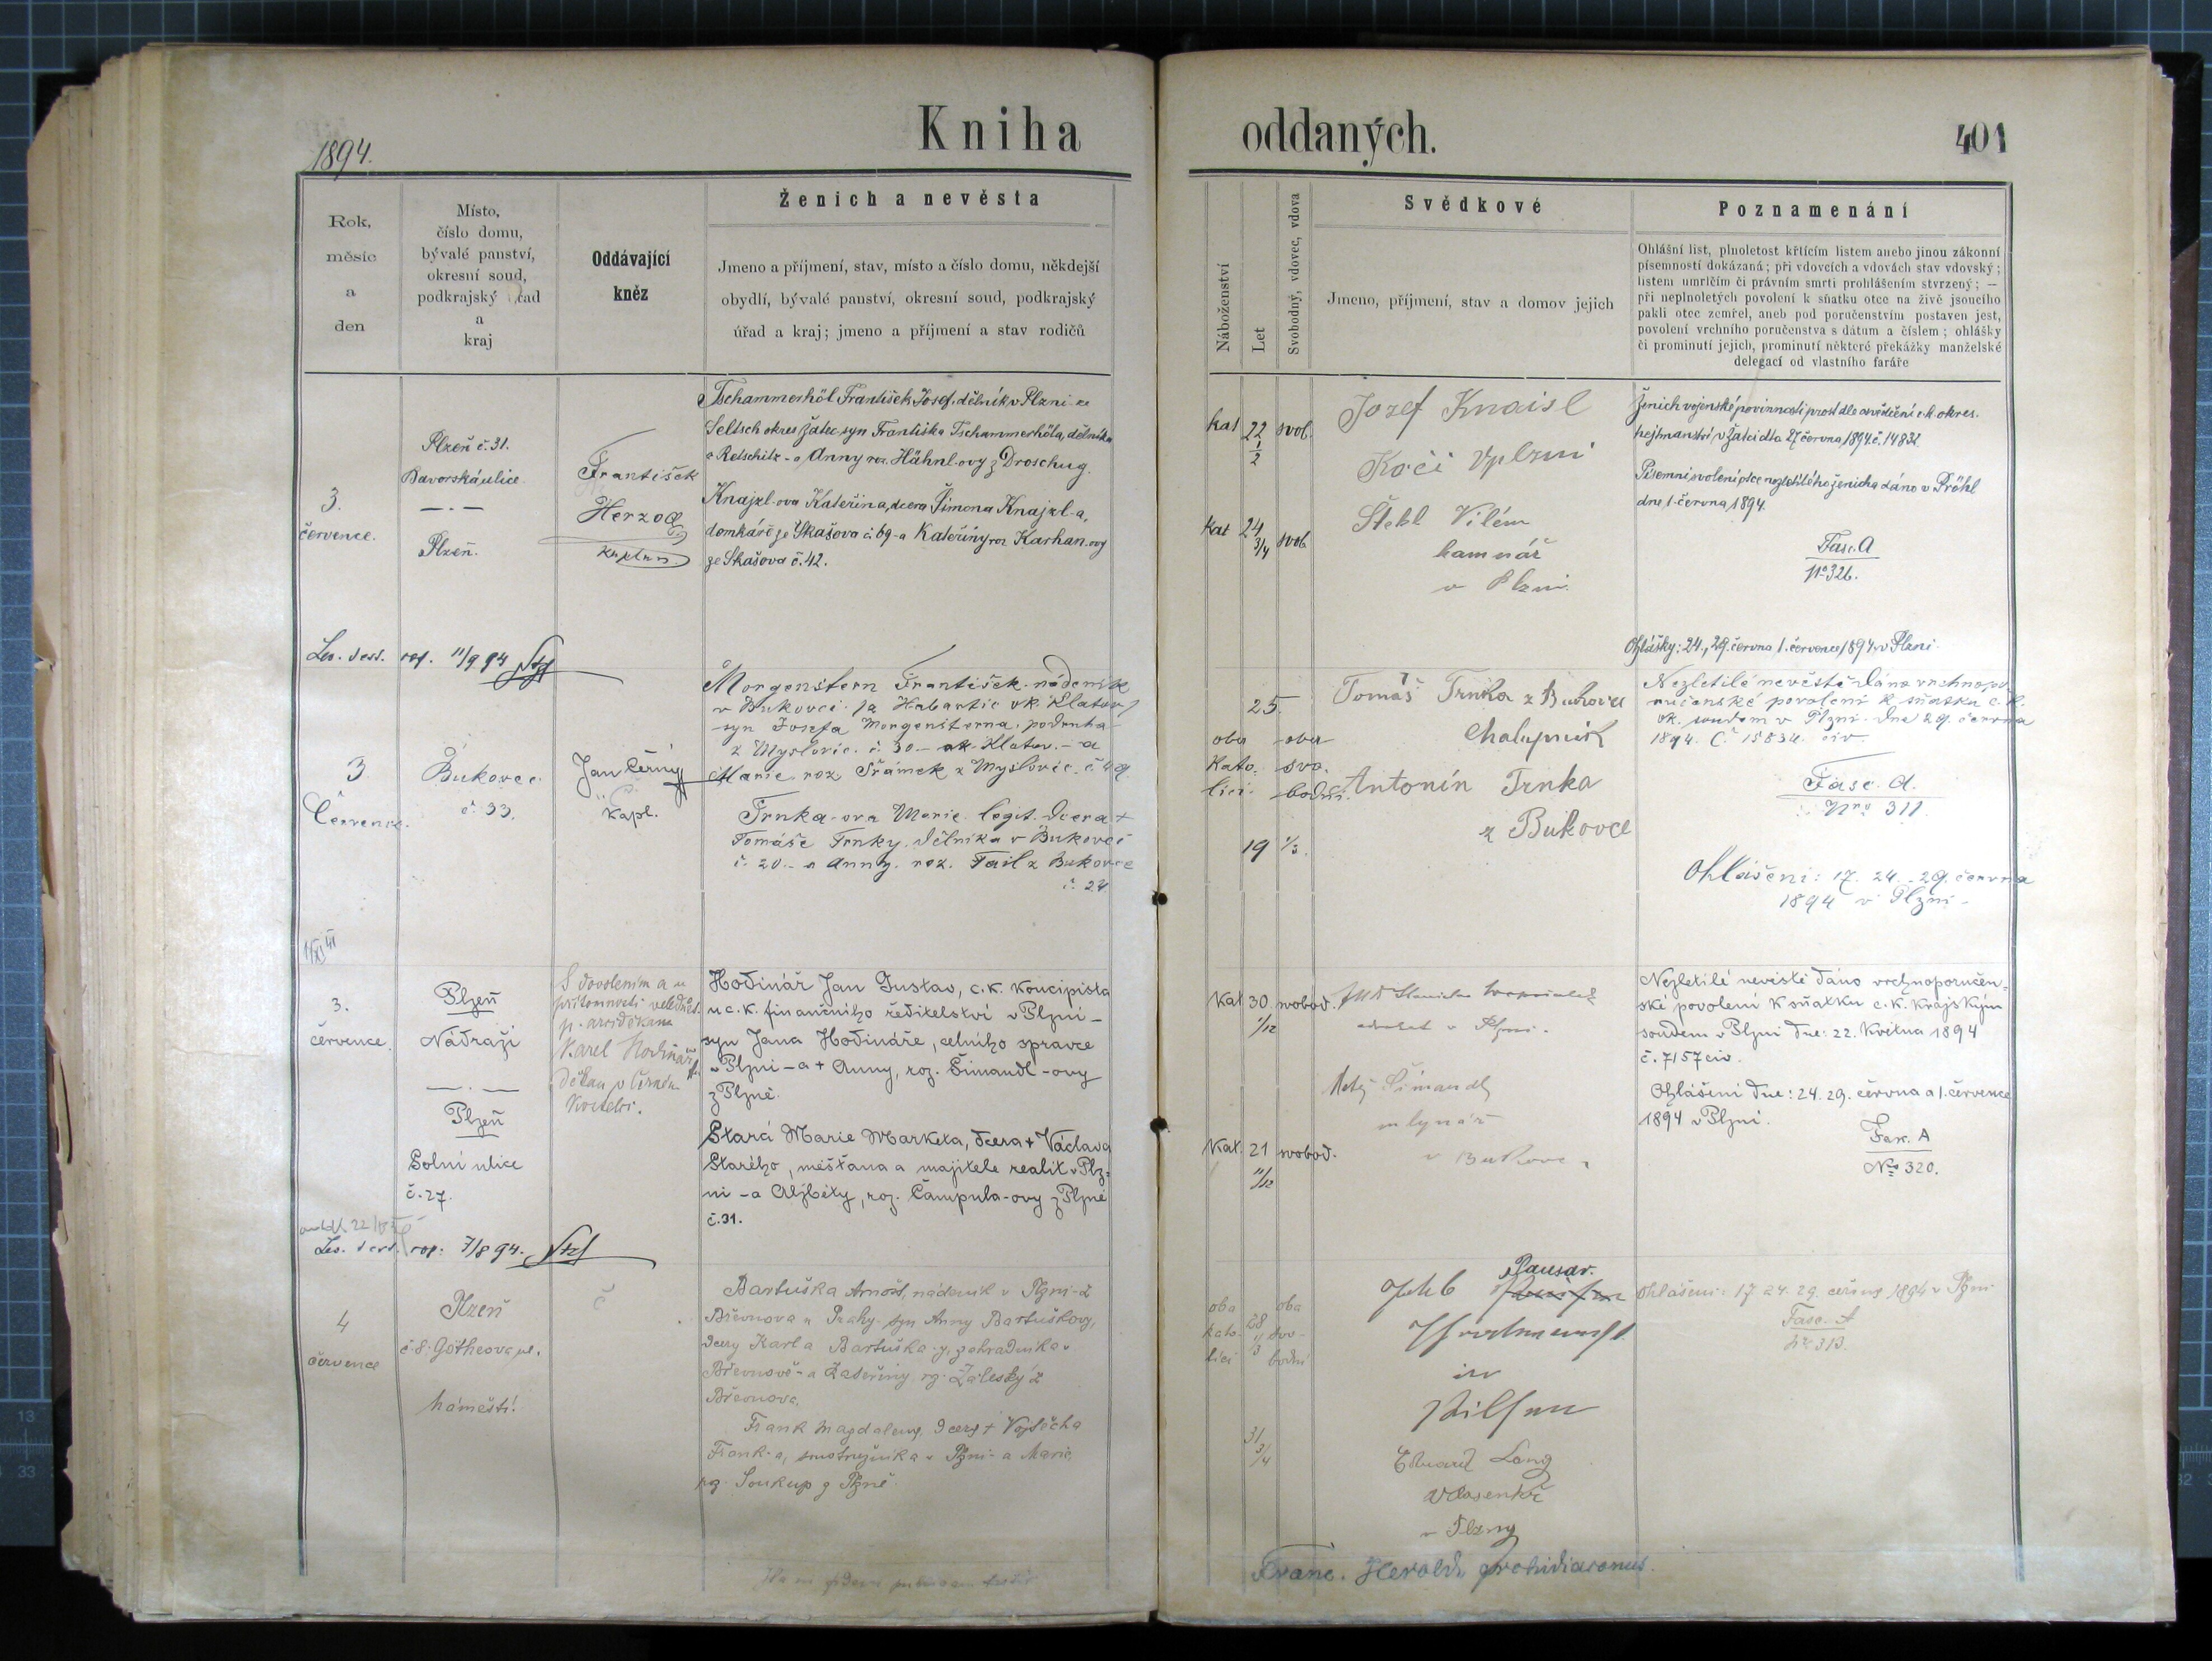 1894.
Kniha oddaných.
401
Rok, měsíc a den
Místo, číslo domu, bývalé panství, okresní soud, podkrajský úřad a kraj
Oddávající kněz
Ženich a nevěsta
Jmeno a příjmení, stav, místo a číslo domu, někdejší
obydlí, bývalé panství, okresní soud, podkrajský
úřad a kraj; jmeno a příjmení a stav rodičů
Náboženství
Let
Svobodný, vdovec, vdova
Svědkové
Jmeno, příjmení, stav a domov jejich
Poznamenání
Ohlášní list, plnoletost křticím listem anebo jinou zákonní
písemností dokázaná; při vdovcích a vdovách stav vdovský;
listem umrlčím či právním smrti prohlášením stvrzený; —
při neplnoletých povolení k sňatku otce na živě jsoucího
pakli otec zemřel, aneb pod poručenstvím postaven jest,
povolení vrchního poručenstva s dátum a číslem; ohlášky
či prominutí jejich, prominutí některé překážky manželské
delegací od vlastního faráře
3.
července.
Plzeň č. 31.
Bavorská ulice
— . —
Plzeň.
František
Herzog
kaplan
Tschammerhöl František Josef, dělník v Plzni - ze
Seltsch okres Žatec, syn Františka Tschammerhöla, dělníka
z Retschitz - a Anny roz. Hähnl-ovy z Droschug.
Knajzl-ova Kateřina, dcera Šimona Knajzl-a,
domkáře ze Skašova č. 69 - a Kateřiny roz. Karhan-ovy
ze Skašova č. 42.
kat 22 1/2 svob.
kat 24 3/4 svob.
Josef Knaisl
Kočí v plzni
Štekl Vilém
kamnář
v Plzni.
Ženich vojenské povinnosti prost dle osvědčení c.k. okres.
hejtmanství v Žatci dto 27 června 1894 č. 14832.
Písemní svolení otce nezletilého ženicha dáno v Pröhl
dne 1. června 1894.
Fasc. A
No 326.
Ohlášky: 24., 29. června 1. července 1894 v Plzni.
11/9 94
3
Července.
Bukovec
č. 33.
Jan Černý
kapl.
Morgenstern František nádeník
v Bukovci, za Habartic ok. Klatov,
syn Josefa Morgensterna, podruha
z Myslovic č. 30 - ok. Klatov. - a
Marie roz. Šrámek z Myslovic č. 49.
Trnka-ova Marie legit. dcera +
Tomáše Trnky, dělníka v Bukovci
č. 20 - a Anny, roz. Tail z Bukovce
č. 24
oba
kato-
lící.
25.
19 1/2.
oba
svo-
bodní.
Tomáš Trnka z Bukovce
Chalupník
Antonín Trnka
z Bukovce
Nezletilé nevěstě dáno vrchnopo-
ručenské povolení k sňatku c. k.
ok. soudem v Plzni dne 29. června
1894. Č. 15834. civ.
Fasc. A.
Nro 311
Ohlášení: 17. 24. 29. června
1894 v Plzni -
3.
července.
Plzeň
Nádraží
— . —
Plzeň
Solní ulice
č. 27.
S dovolením a u
přítomnosti veledůst.
p. arciděkana
Karel Hodinář
děkan v Černém
Kostelci.
Hodinář Jan Gustav, c. k. koncipista
u c. k. finančního ředitelství v Plzni -
syn Jana Hodináře, celního správce
v Plzni - a + Anny, roz. Šimandl-ovy
z Plzně.
Stará Marie Marketa, dcera + Václava
Starého, měšťana a majitele realit v Plz-
ni - a Alžběty, roz. Čampula-ovy z Plzně
č. 31.
Kat 30 1/12 svobod.
Kat. 21 11/12 svobod.
advokát v Plzni.
Matěj Šimandl
mlynář
v Bukovci
Nezletilé nevěstě dáno vrchnoporučen-
ské povolení k sňatku c. k. krajským
soudem v Plzni dne: 22. května 1894
č. 7157 civ.
Ohlášení dne: 24. 29. června a 1. července
1894 v Plzni.
Fasc. A
No 320.
7/8 94.
4
července
Plzeň
č. 8. Götheova ul.
náměstí.
Bartuška Arnošt, nádeník v Plzni - z
Břevnova u Prahy - syn Anny Bartuškovy,
dcery Karla Bartuška-y, zahradníka v
Břevnově - a Kateřiny roz. Záleský z
Břevnova.
Frank Magdalena, dcera + Vojtěcha
Frank-a, v Plzni - a Marie,
roz. Soukup z Plzně.
oba
kato-
líci
28 1/3
31 3/4
oba
svo-
bodní
Jakob Pausar.
in
Pilsen
Eduard Lang
vlasenkář
v Plzny
Ohlášení: 17. 24. 29. června 1894 v Plzni
Fasc. A
No 313.
Franc. Herold, archidiaconus.